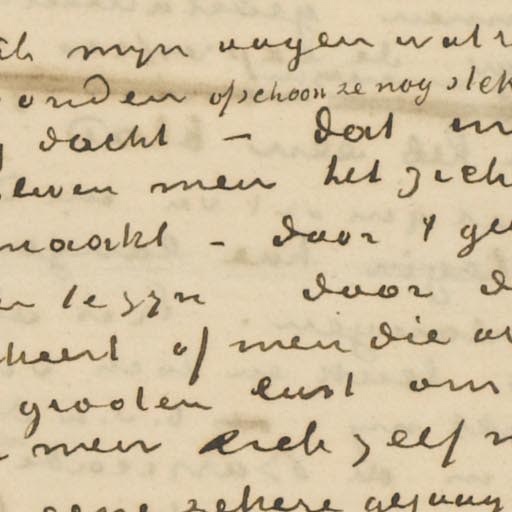 mijn oogen wat
onden ofschoon ze nog slek
dacht – dat m
even men het zich
maakt – door 't ge
en te zijn door d
heert of men die
grooten lust om
men zich zelf
eene zekere